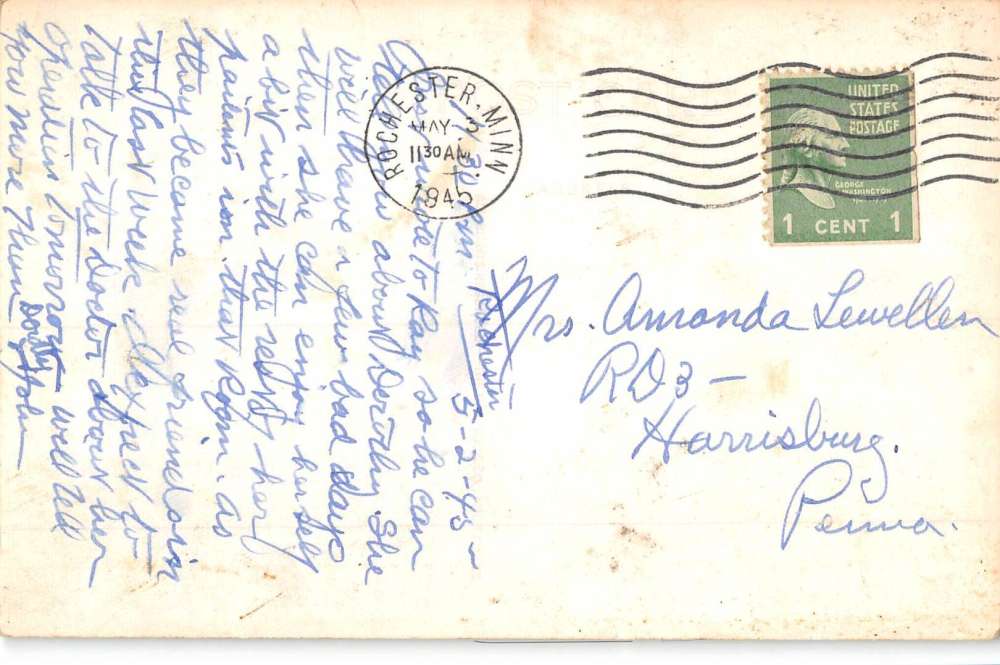 ROCHESTER, MINN.
MAY 3
1130 AM
1945
UNITED
STATES
POSTAGE
GEORGE
WASHINGTON
1 CENT 1
Mrs. Amanda Lewellen
RD 3 -
Harrisburg.
Penna.
Rochester
30 pm 5-2-45 -
to Ray so he can
about Dorothy. She
will have a few bad days
then she can enjoy herself
a bit with the rest of her
patients in that Room. as
they become real friends in
this last week. I expect to
talk to the Doctor about her
tomorrow will tell
you more then
John